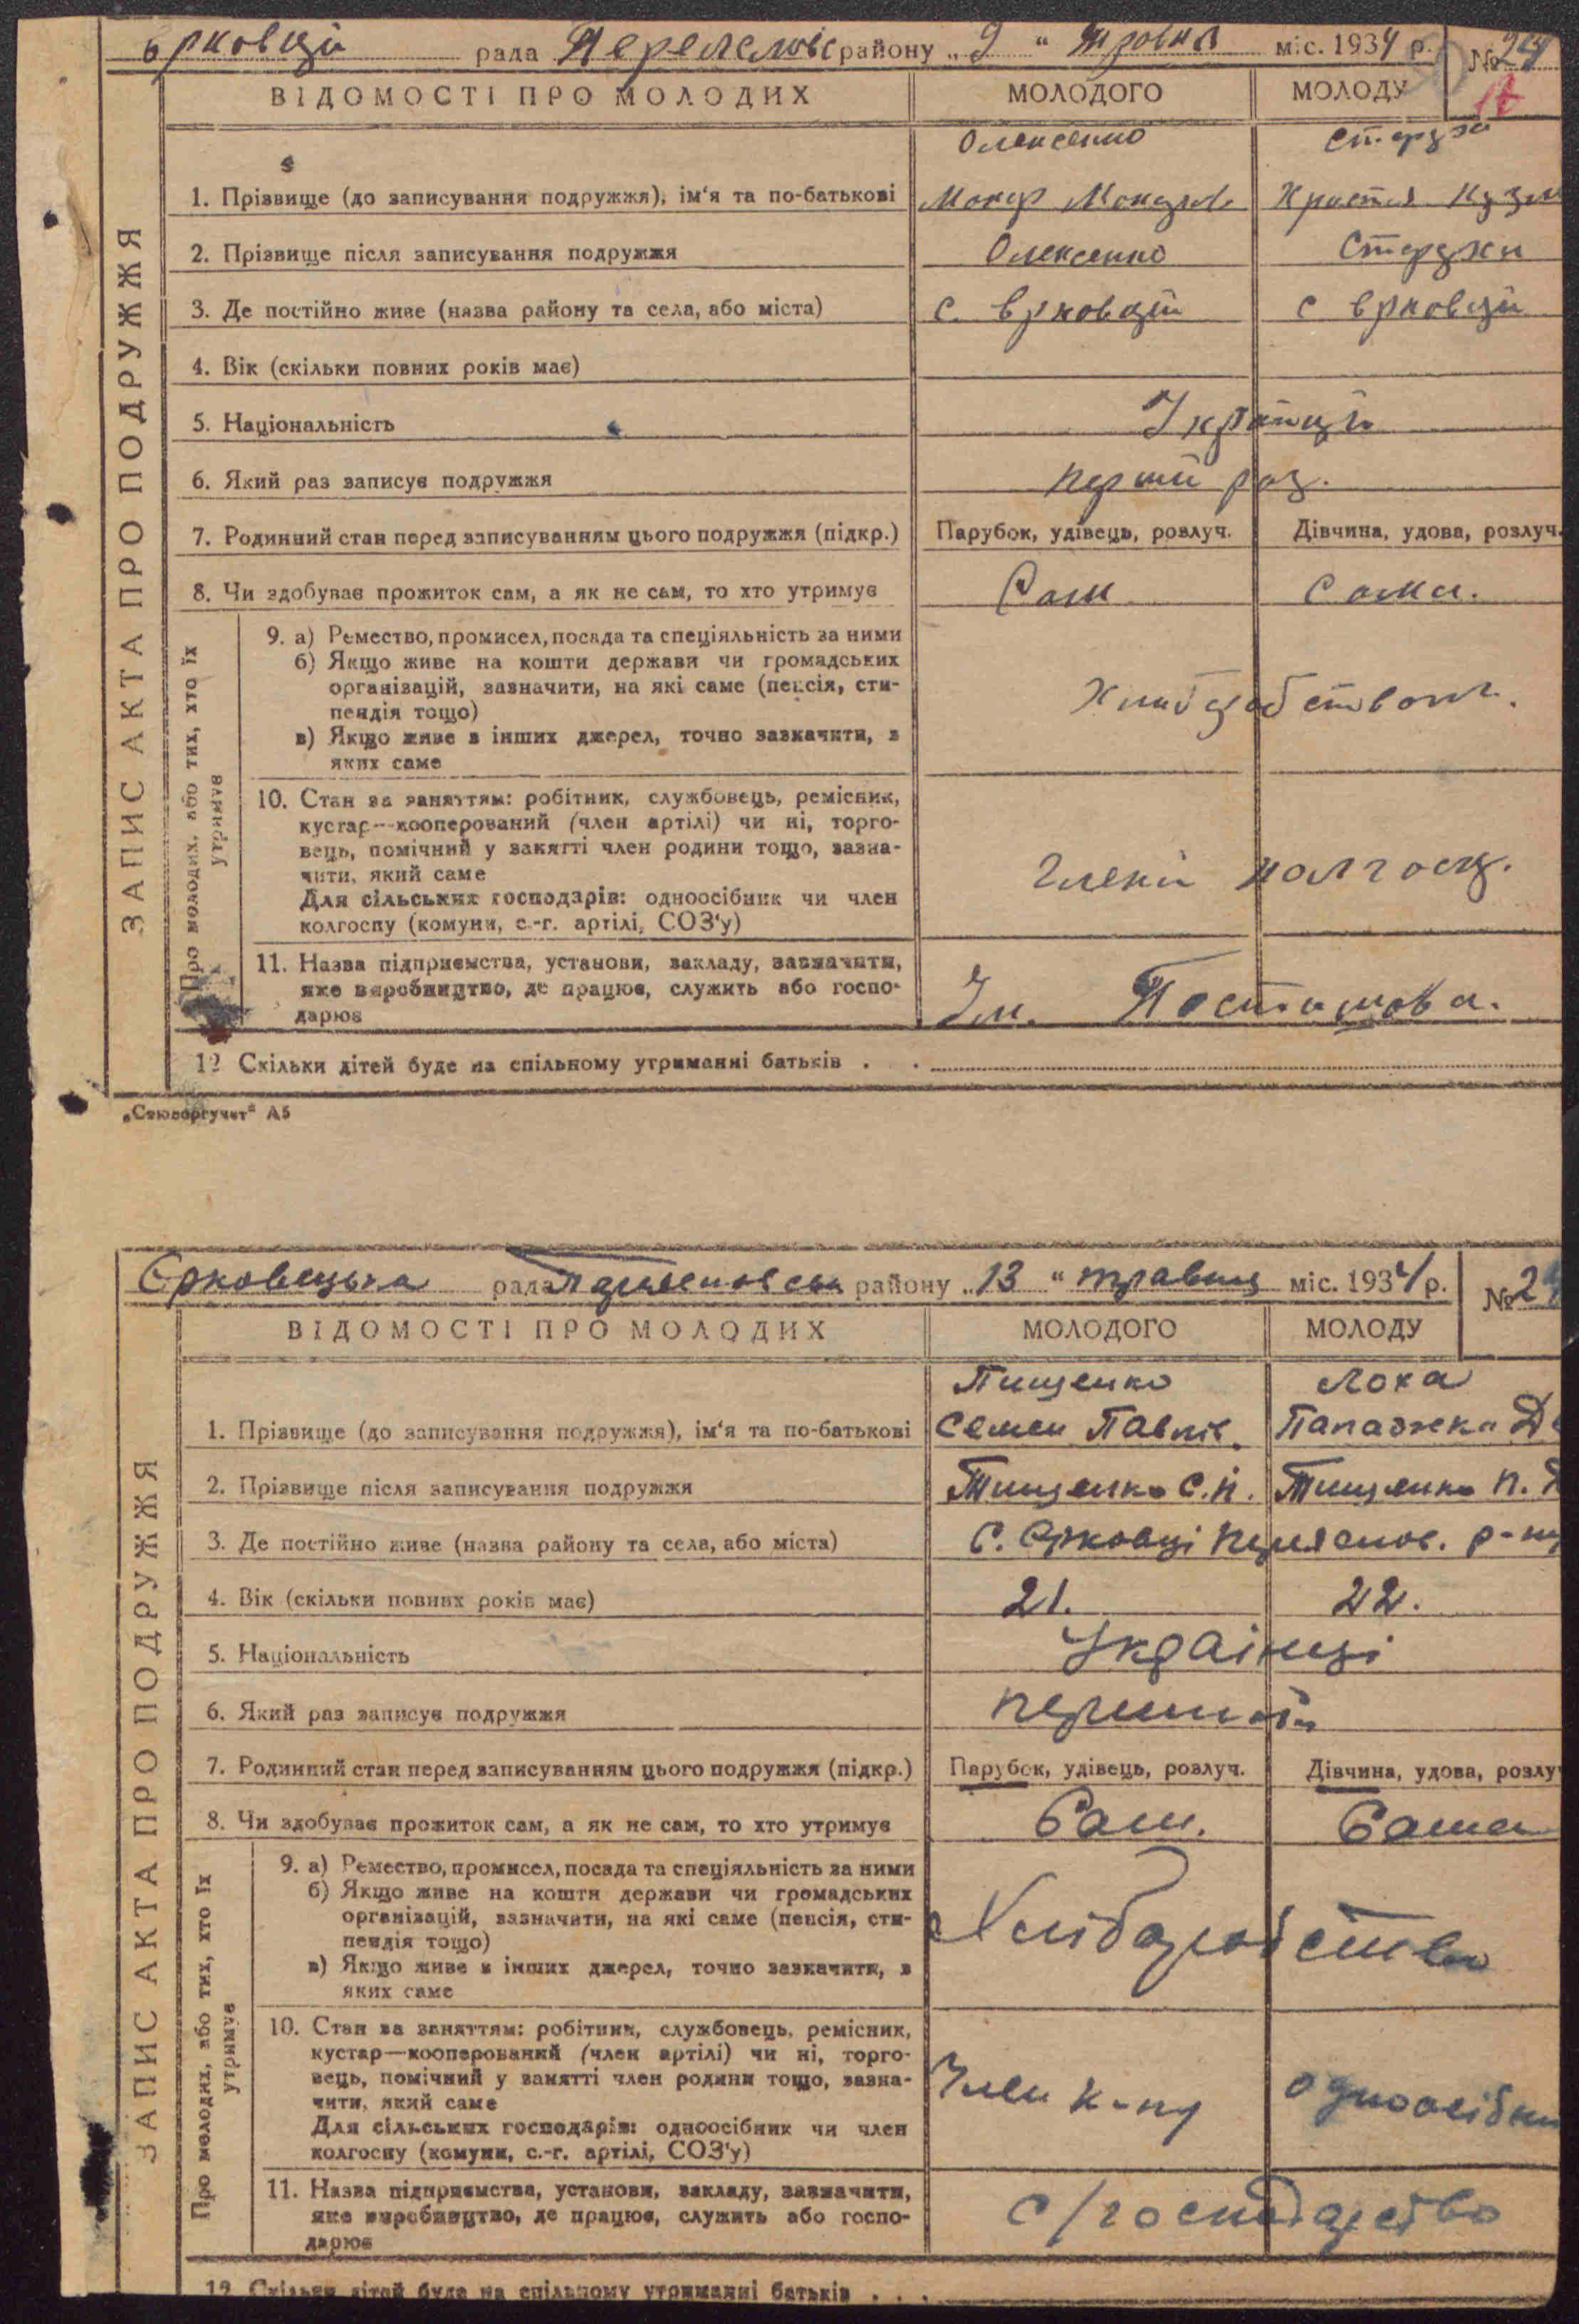 Єрковці рада Переяслівс району „ 9 “ травня міс. 1934 р. №
ВІДОМОСТІ ПРО МОЛОДИХ МОЛОДОГО МОЛОДУ
Олексенко
1. Прізвище (до записування подружжя), ім‘я та по-батькові Христя Кузм
2. Прізвище після записування подружжя Олексенко
3. Де постійно живе (назва району та села, або міста) с Єрковці с Єрковці
4. Вік (скільки повних років має)
5. Національність Українці
6. Який раз записує подружжя перший раз.
7. Родинний стан перед записуванням цього подружжя (підкр.) Парубок, удівець, розлуч. Дівчина, удова, розлуч.
8. Чи здобуває прожиток сам, а як не сам, то хто утримує Сам Сама.
ЗАПИС АКТА ПРО ПОДРУЖЖЯ
Про молодих, або тих, хто їх
утримує
9. а) Ремество, промисел, посада та спеціяльність за ними
б) Якщо живе на кошти держави чи громадських
організацій, зазначити, на які саме (пенсія, сти-
пендія тощо)
в) Якщо живе з інших джерел, точно зазначити, з
яких саме
10. Стан за заняттям: робітник, службовець, ремісник,
кустар—кооперований (член артілі) чи ні, торго-
вець, помічний у занятті член родини тощо, зазна-
чити, який саме
Для сільських господарів: одноосібник чи член
колгоспу (комуни, с.-г. артілі, СОЗ‘у)
Члени колгосп.
11. Назва підприємства, установи, закладу, зазначити,
яке виробництво, де працює, служить або госпо-
дарює
Ім. Постишева.
12 Скільки дітей буде на спільному утриманні батьків . .
„Союзоргучет“ А5
Єрковецька рада Переяславськ району „ 13 “ травня міс. 1934 р. №
ВІДОМОСТІ ПРО МОЛОДИХ МОЛОДОГО МОЛОДУ
Тищенко Лоха
1. Прізвище (до записування подружжя), ім‘я та по-батькові Семен Павлів. Палажка
2. Прізвище після записування подружжя Тищенко С.П. Тищенко П.
3. Де постійно живе (назва району та села, або міста) С. Єрковці Переяслов. р-ну
4. Вік (скільки повних років має) 21. 22.
5. Національність Українці
6. Який раз записує подружжя перший
7. Родинний стан перед записуванням цього подружжя (підкр.) Парубок, удівець, розлуч. Дівчина, удова, розлу
8. Чи здобуває прожиток сам, а як не сам, то хто утримує Сам. Сама
ЗАПИС АКТА ПРО ПОДРУЖЖЯ
Про молодих, або тих, хто їх
утримує
9. а) Ремество, промисел, посада та спеціяльність за ними
б) Якщо живе на кошти держави чи громадських
організацій, зазначити, на які саме (пенсія, сти-
пендія тощо)
в) Якщо живе з інших джерел, точно зазначити, з
яких саме
Хліборобство
10. Стан за заняттям: робітник, службовець, ремісник,
кустар—кооперований (член артілі) чи ні, торго-
вець, помічний у занятті член родини тощо, зазна-
чити, який саме
Для сільських господарів: одноосібник чи член
колгоспу (комуни, с.-г. артілі, СОЗ‘у)
Член к-пу одноосібни
11. Назва підприємства, установи, закладу, зазначити,
яке виробництво, де працює, служить або госпо-
дарює
с/господарство
12 Скільки дітей буде на спільному утриманні батьків . . .